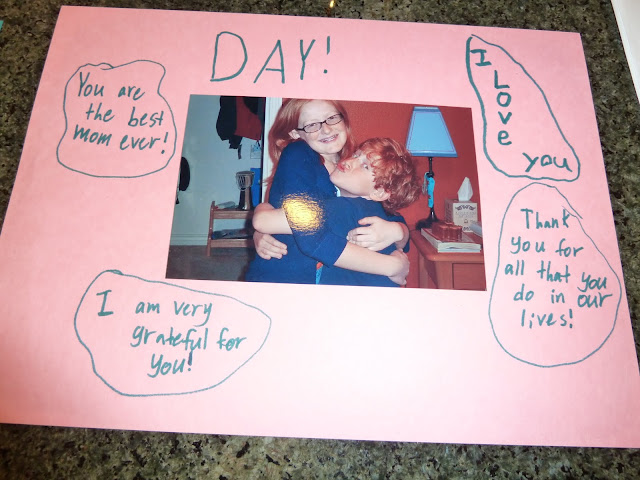 DAY!
You are
the best
mom ever!
I
L
o
v
e
you
Thank
you for
all that you
do in our
lives!
I am very
grateful for
you!